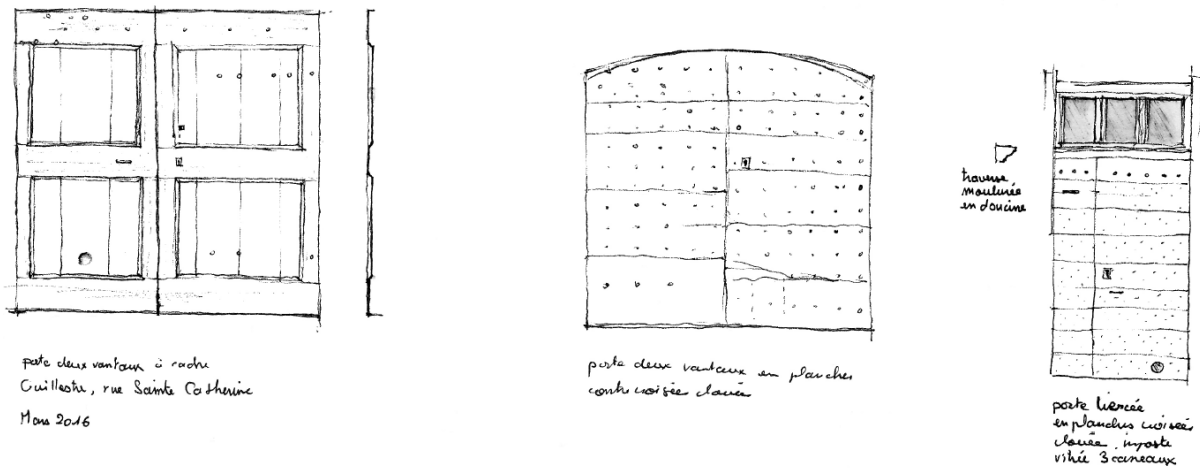 porte deux vantaux à cadre
Guillestre, rue Sainte Catherine
Mars 2016
porte deux vantaux en planches
contrecroisées clouées
traverse
moulurée
en doucine
porte tiercée
en planches croisées
clouée, imposte
vitrée 3 carreaux